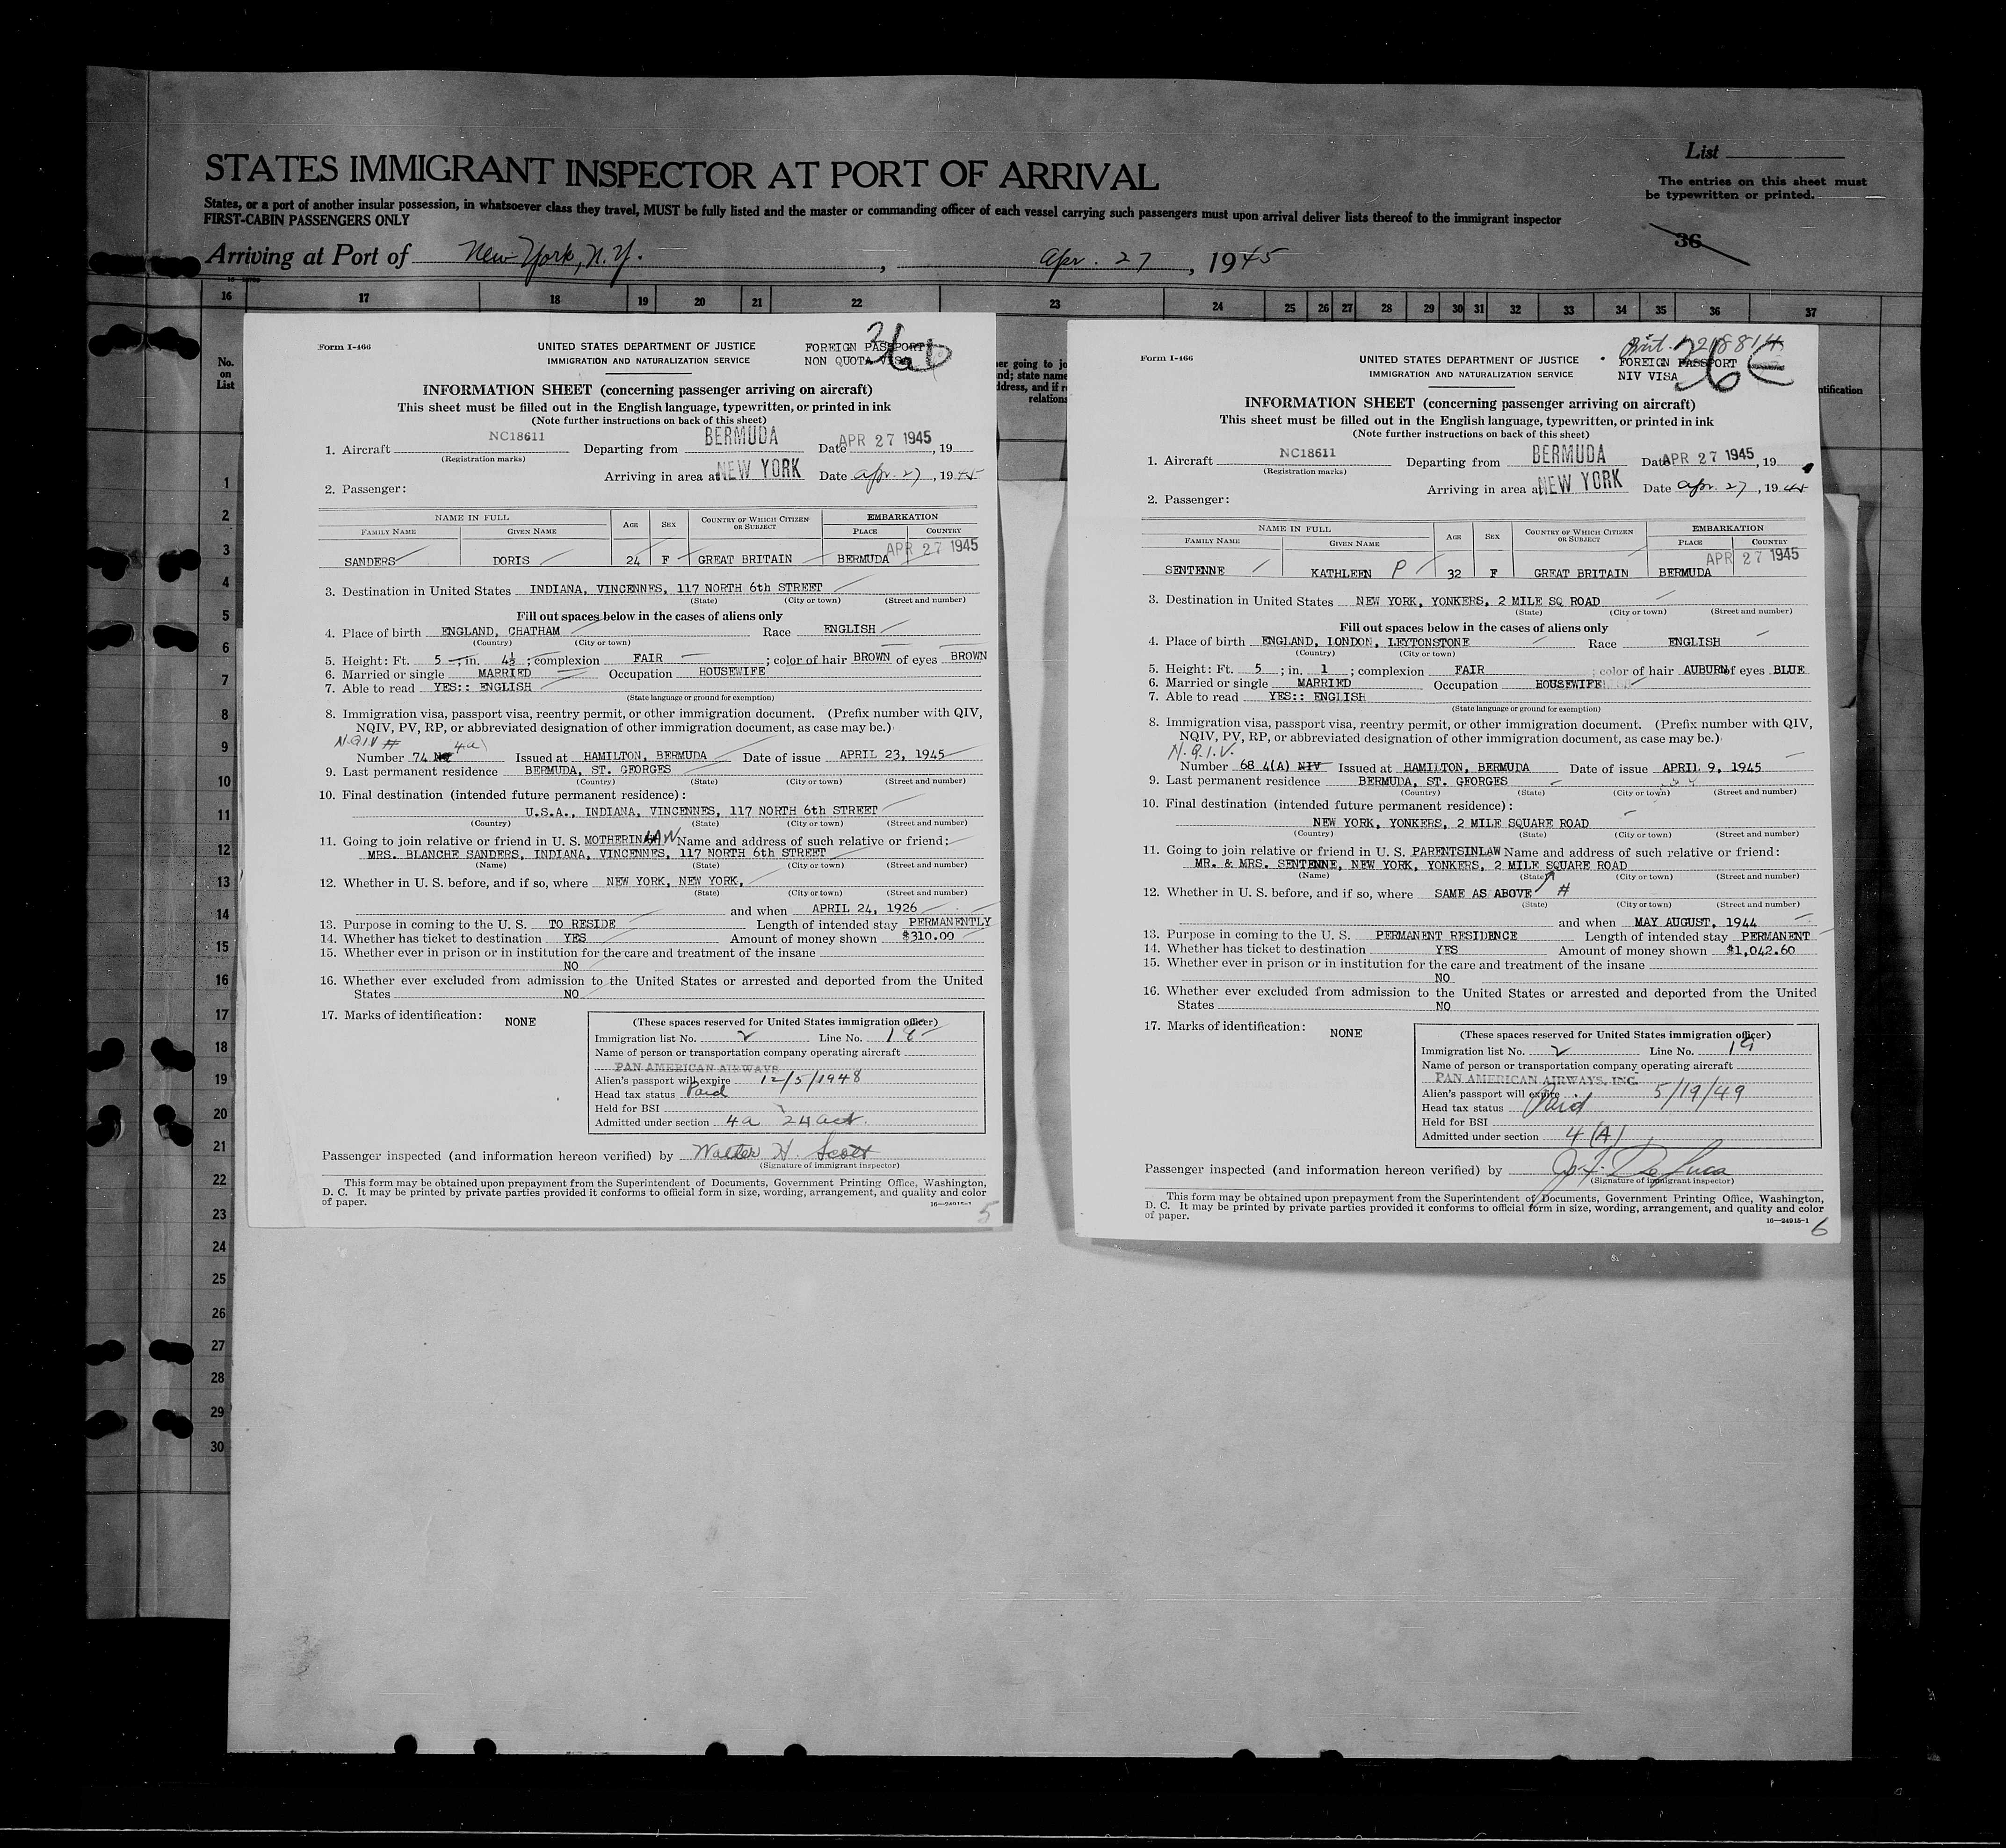 STATES IMMIGRANT INSPECTOR AT PORT OF ARRIVAL
List
The entries on this sheet must
be typewritten or printed.
States, or a port of another insular possession, in whatsoever class they travel, MUST be fully listed and the master or commanding officer of each vessel carrying such passengers must upon arrival deliver lists thereof to the immigrant inspector
FIRST-CABIN PASSENGERS ONLY
36
Arriving at Port of New York, N.Y. , Apr. 27, 1945
16 17 18 19 20 21 22 23 24 25 26 27 28 29 30 31 32 33 34 35 36 37
No.
on
List
1
2
3
4
5
6
7
8
9
10
11
12
13
14
15
16
17
18
19
20
21
22
23
24
25
26
27
28
29
30
Form I-466
UNITED STATES DEPARTMENT OF JUSTICE
IMMIGRATION AND NATURALIZATION SERVICE
FOREIGN PASSPORT
NON QUOTA VISA
36 D
INFORMATION SHEET (concerning passenger arriving on aircraft)
This sheet must be filled out in the English language, typewritten, or printed in ink
(Note further instructions on back of this sheet)
1. Aircraft NC18611 Departing from BERMUDA Date APR 27 1945, 19
(Registration marks)
Arriving in area at NEW YORK Date Apr. 27, 1945
2. Passenger:
NAME IN FULL AGE SEX COUNTRY OF WHICH CITIZEN OR SUBJECT EMBARKATION
FAMILY NAME GIVEN NAME PLACE COUNTRY
SANDERS DORIS 24 F GREAT BRITAIN BERMUDA APR 27 1945
3. Destination in United States INDIANA, VINCENNES, 117 NORTH 6th STREET
(State) (City or town) (Street and number)
Fill out spaces below in the cases of aliens only
4. Place of birth ENGLAND, CHATHAM Race ENGLISH
(Country) (City or town)
5. Height: Ft. 5 ; in. 4½ ; complexion FAIR ; color of hair BROWN of eyes BROWN
6. Married or single MARRIED Occupation HOUSEWIFE
7. Able to read YES:: ENGLISH
(State language or ground for exemption)
8. Immigration visa, passport visa, reentry permit, or other immigration document. (Prefix number with QIV,
NQIV, PV, RP, or abbreviated designation of other immigration document, as case may be.)
N.Q.I.V # 4a
Number 74 Issued at HAMILTON, BERMUDA Date of issue APRIL 23, 1945
9. Last permanent residence BERMUDA, ST. GEORGES
(Country) (State) (City or town) (Street and number)
10. Final destination (intended future permanent residence):
U.S.A., INDIANA, VINCENNES, 117 NORTH 6th STREET
(Country) (State) (City or town) (Street and number)
11. Going to join relative or friend in U. S. MOTHERINLAW Name and address of such relative or friend:
MRS. BLANCHE SANDERS, INDIANA, VINCENNES, 117 NORTH 6th STREET
(Name) (State) (City or town) (Street and number)
12. Whether in U. S. before, and if so, where NEW YORK, NEW YORK,
(State) (City or town) (Street and number)
and when APRIL 24, 1926
13. Purpose in coming to the U. S. TO RESIDE Length of intended stay PERMANENTLY
14. Whether has ticket to destination YES Amount of money shown $310.00
15. Whether ever in prison or in institution for the care and treatment of the insane
NO
16. Whether ever excluded from admission to the United States or arrested and deported from the United
States NO
17. Marks of identification: NONE
(These spaces reserved for United States immigration officer)
Immigration list No. 2 Line No. 18
Name of person or transportation company operating aircraft
PAN AMERICAN AIRWAYS
Alien's passport will expire 12/5/1948
Head tax status Paid
Held for BSI
Admitted under section 4a 24 act.
Passenger inspected (and information hereon verified) by Walter H. Scott
(Signature of immigrant inspector)
This form may be obtained upon prepayment from the Superintendent of Documents, Government Printing Office, Washington,
D. C. It may be printed by private parties provided it conforms to official form in size, wording, arrangement, and quality and color
of paper.
16—24915-1
5
er going to jo
nd; state name
ddress, and if r
relations
ntification
Form I-466
UNITED STATES DEPARTMENT OF JUSTICE
IMMIGRATION AND NATURALIZATION SERVICE
FOREIGN PASSPORT
NIV VISA
INFORMATION SHEET (concerning passenger arriving on aircraft)
This sheet must be filled out in the English language, typewritten, or printed in ink
(Note further instructions on back of this sheet)
1. Aircraft NC18611 Departing from BERMUDA Date APR 27 1945, 19
(Registration marks)
Arriving in area at NEW YORK Date Apr. 27, 1945
2. Passenger:
NAME IN FULL AGE SEX COUNTRY OF WHICH CITIZEN OR SUBJECT EMBARKATION
FAMILY NAME GIVEN NAME PLACE COUNTRY
SENTENNE KATHLEEN P 32 F GREAT BRITAIN BERMUDA APR 27 1945
3. Destination in United States NEW YORK, YONKERS, 2 MILE SQ ROAD
(State) (City or town) (Street and number)
Fill out spaces below in the cases of aliens only
4. Place of birth ENGLAND, LONDON, LEYTONSTONE Race ENGLISH
(Country) (City or town)
5. Height: Ft. 5 ; in. 1 ; complexion FAIR ; color of hair AUBURN of eyes BLUE
6. Married or single MARRIED Occupation HOUSEWIFE
7. Able to read YES:: ENGLISH
(State language or ground for exemption)
8. Immigration visa, passport visa, reentry permit, or other immigration document. (Prefix number with QIV,
NQIV, PV, RP, or abbreviated designation of other immigration document, as case may be.)
N.Q.I.V.
Number 68 4(A) NIV Issued at HAMILTON, BERMUDA Date of issue APRIL 9, 1945
9. Last permanent residence BERMUDA, ST. GEORGES
(Country) (State) (City or town) (Street and number)
10. Final destination (intended future permanent residence):
NEW YORK, YONKERS, 2 MILE SQUARE ROAD
(Country) (State) (City or town) (Street and number)
11. Going to join relative or friend in U. S. PARENTSINLAW Name and address of such relative or friend:
MR. & MRS. SENTENNE, NEW YORK, YONKERS, 2 MILE SQUARE ROAD
(Name) (State) (City or town) (Street and number)
12. Whether in U. S. before, and if so, where SAME AS ABOVE #
(State) (City or town) (Street and number)
and when MAY AUGUST, 1944
13. Purpose in coming to the U. S. PERMANENT RESIDENCE Length of intended stay PERMANENT
14. Whether has ticket to destination YES Amount of money shown $1,042.60
15. Whether ever in prison or in institution for the care and treatment of the insane
NO
16. Whether ever excluded from admission to the United States or arrested and deported from the United
States NO
17. Marks of identification: NONE
(These spaces reserved for United States immigration officer)
Immigration list No. 2 Line No. 19
Name of person or transportation company operating aircraft
PAN AMERICAN AIRWAYS, INC.
Alien's passport will expire 5/19/49
Head tax status Paid
Held for BSI
Admitted under section 4(A)
Passenger inspected (and information hereon verified) by De Luca
(Signature of immigrant inspector)
This form may be obtained upon prepayment from the Superintendent of Documents, Government Printing Office, Washington,
D. C. It may be printed by private parties provided it conforms to official form in size, wording, arrangement, and quality and color
of paper.
16—24915-1
6